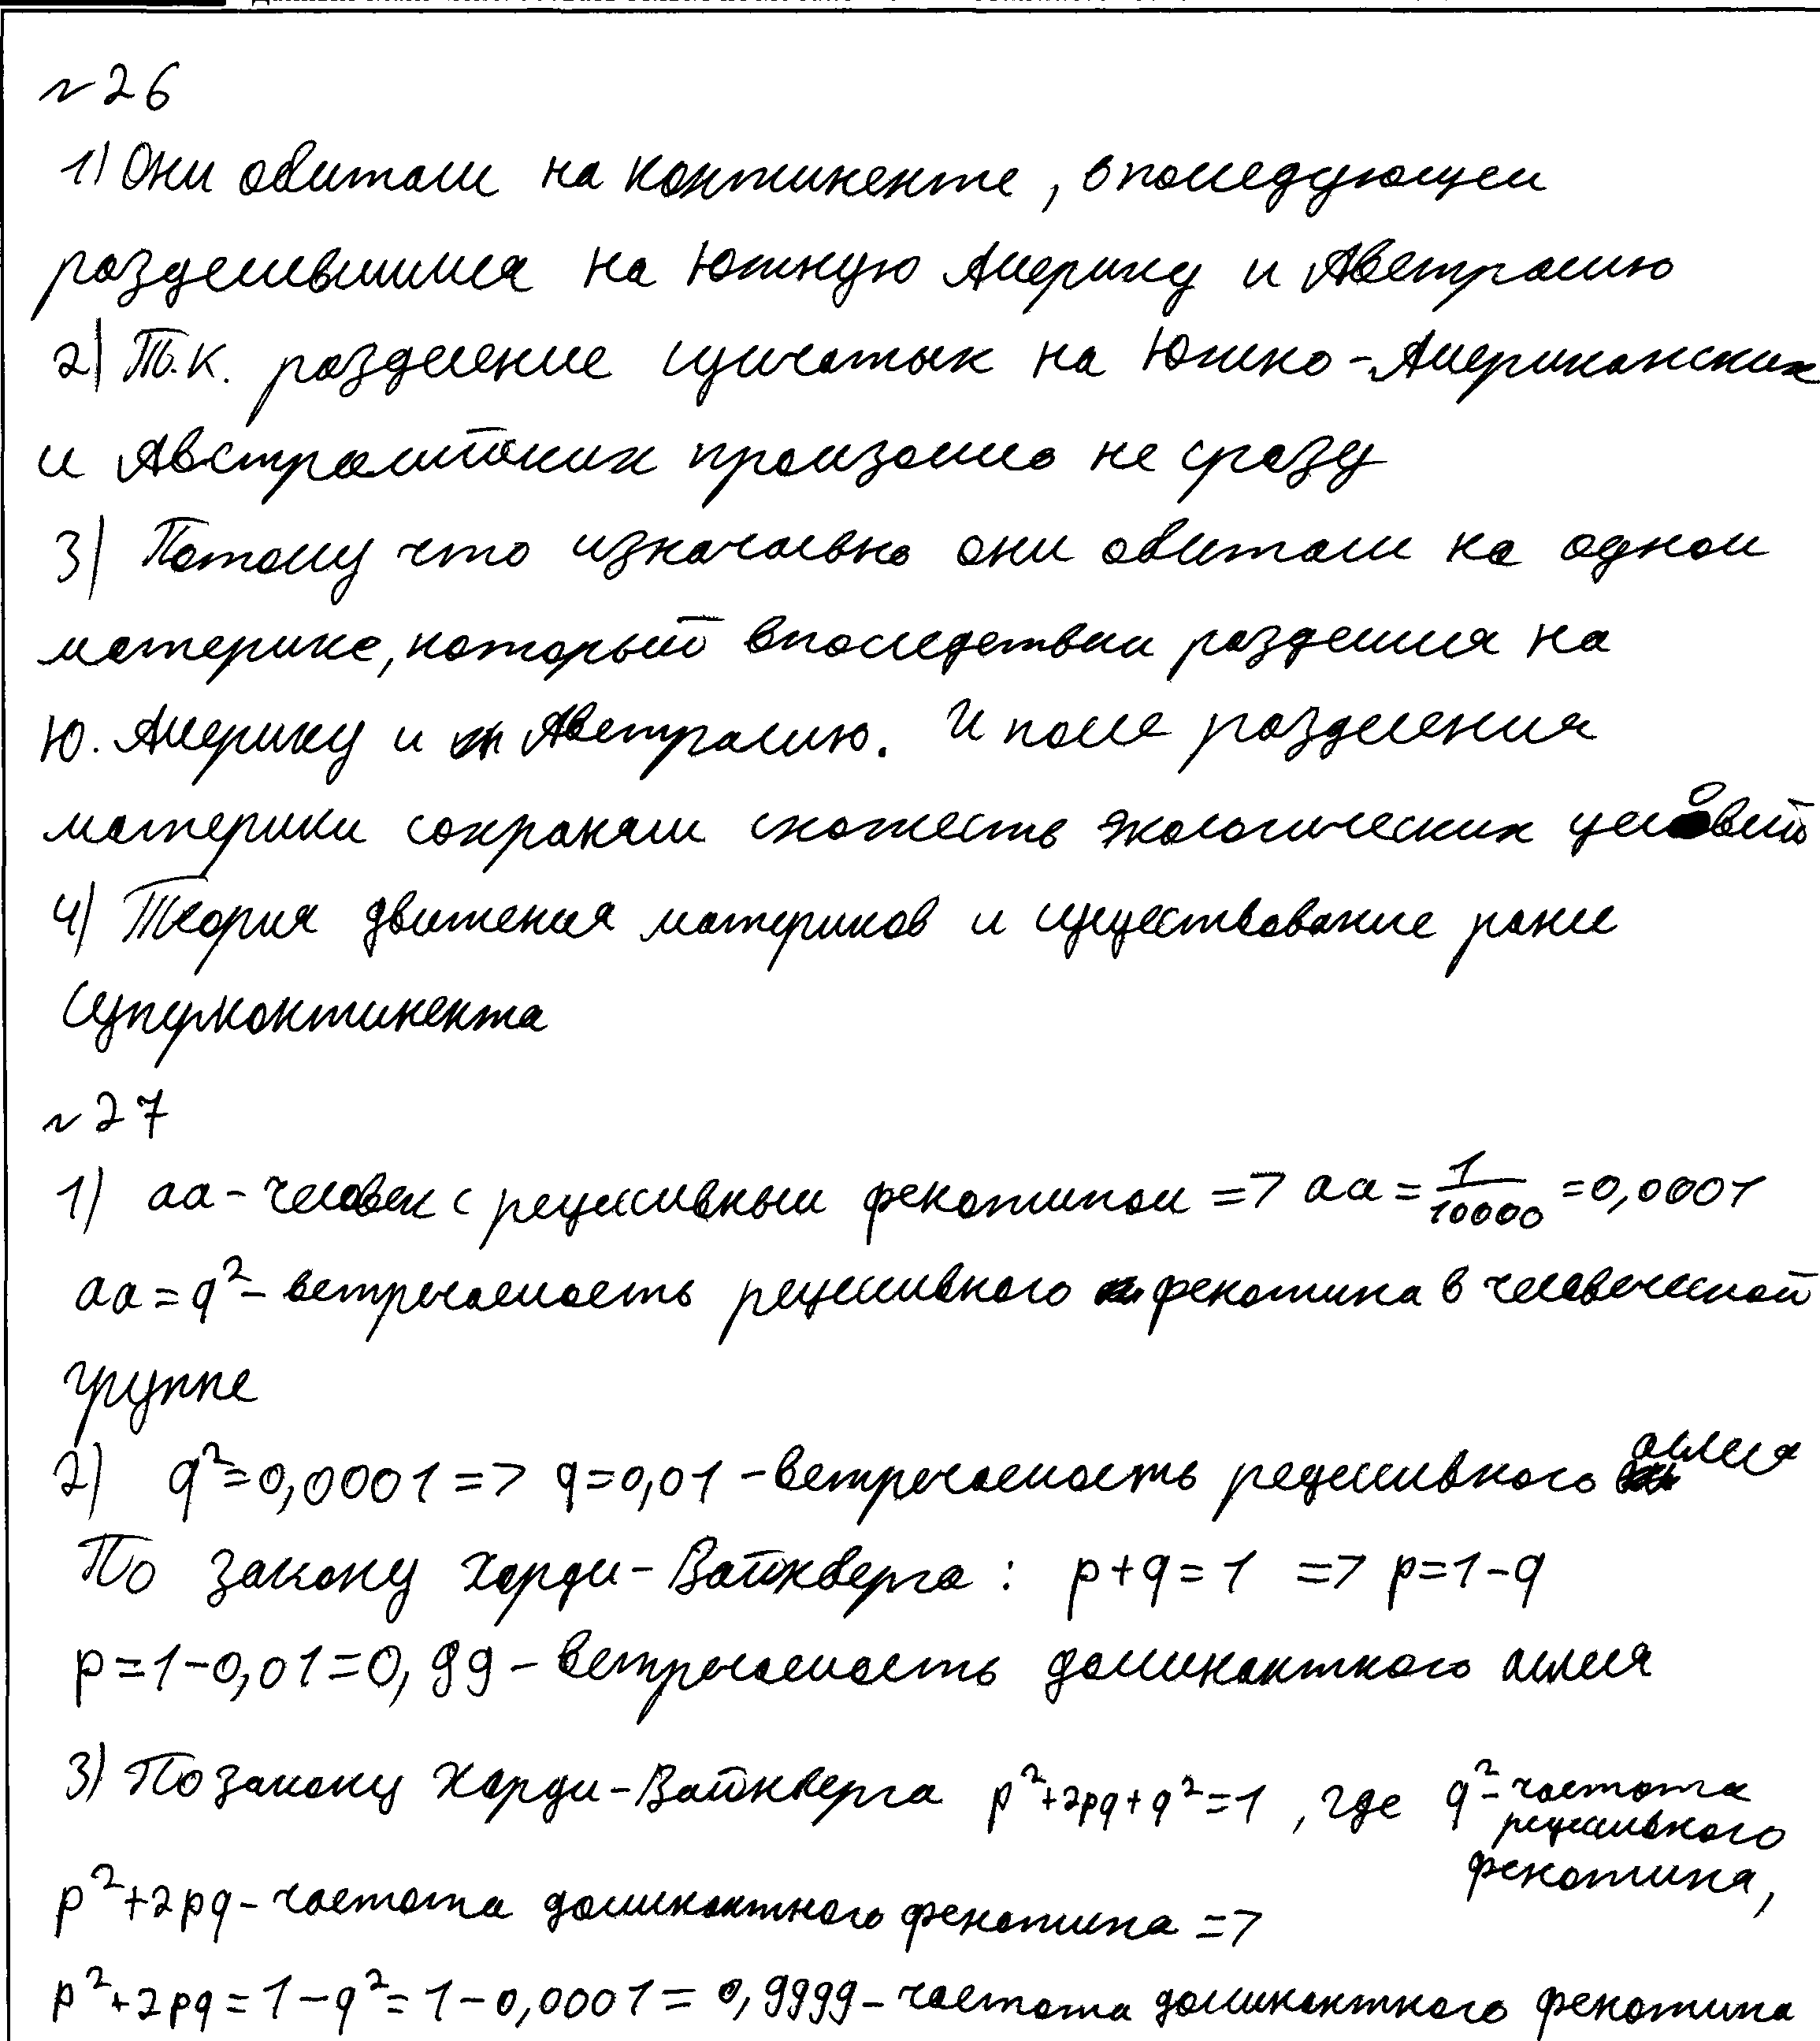 №26
1) Они обитали на континенте, в последующем
разделившимся на Южную Америку и Австралию
2) Т.к. разделение сумчатых на Южно-Американских
и Австралийских произошло не сразу
3) Потому что изначально они обитали на одном
материке, который впоследствии разделился на
Ю. Америку и Австралию. И после разделения
материки сохраняли схожесть экологических условий
4) Теория движения материков и существование ранее
суперконтинента
№27
1) aa - человек с рецессивным фенотипом => aa = 1/10000 = 0,0001
aa = q² - встречаемость рецессивного фенотипа в человеческой
группе
2) q²=0,0001 => q=0,01 - встречаемость рецессивного аллеля
По закону Харди-Вайнберга: p+q=1 => p=1-q
p=1-0,01=0,99 - встречаемость доминантного аллеля
3) По закону Харди-Вайнберга p²+2pq+q²=1, где q² - частота
рецессивного
фенотипа,
p²+2pq - частота доминантного фенотипа =>
p²+2pq=1-q²=1-0,0001=0,9999 - частота доминантного фенотипа